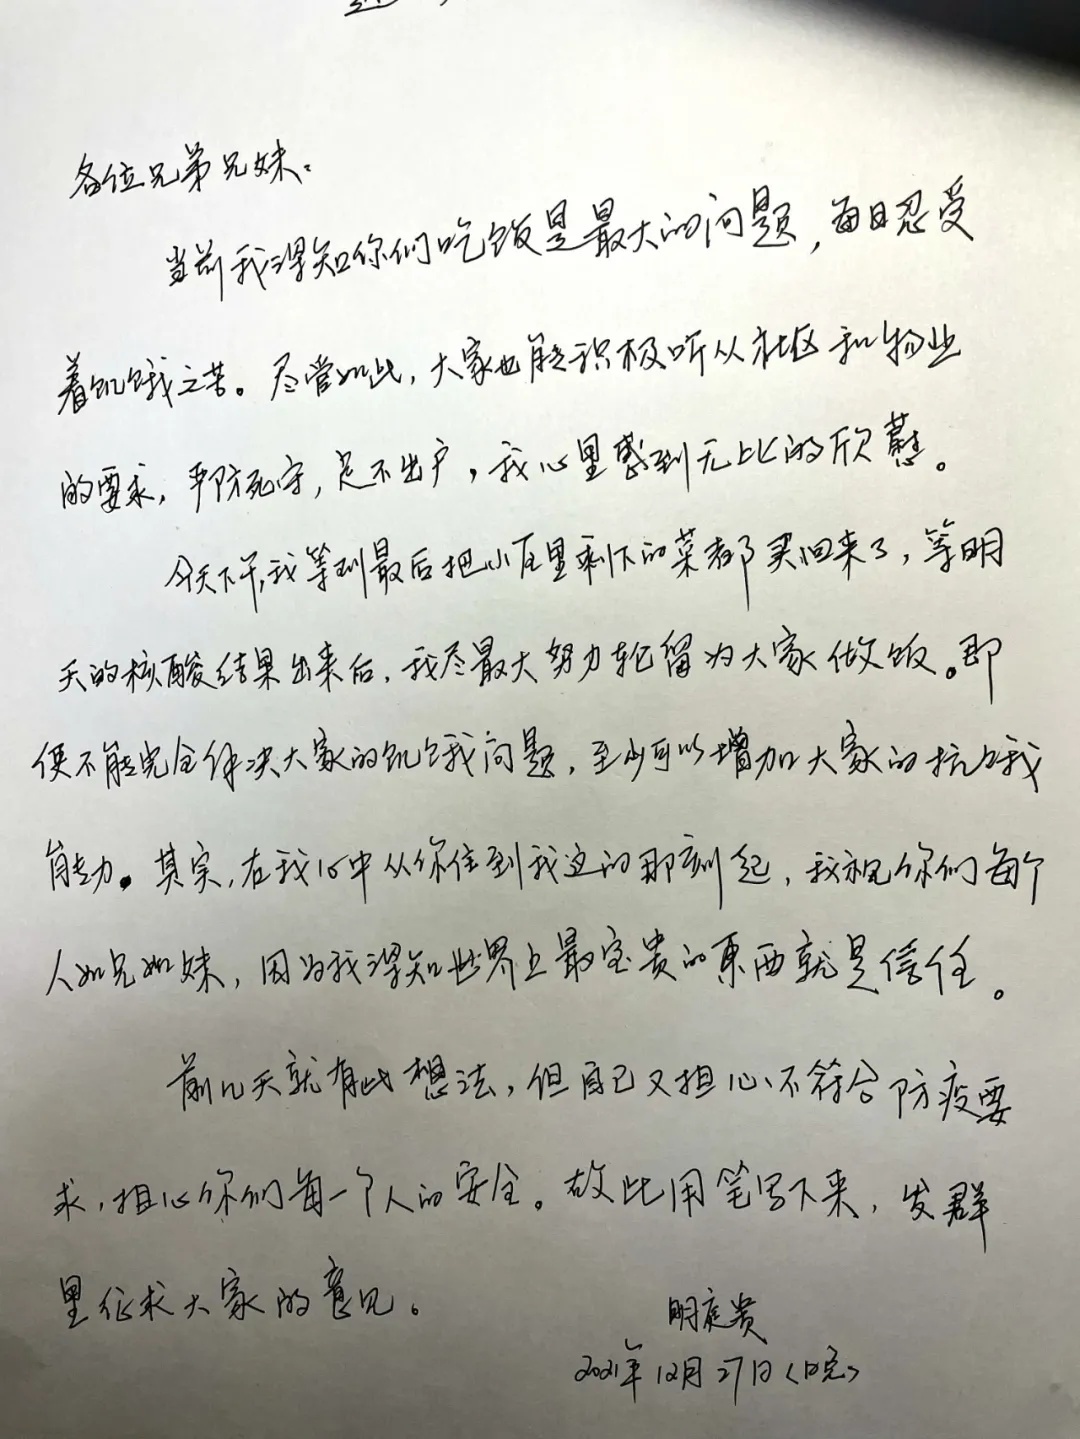 各位兄弟兄妹：
当前我得知你们吃饭是最大的问题，每日忍受
着饥饿之苦。尽管如此，大家也能积极听从社区和物业
的要求，严防死守，足不出户，我心里感到无比的欣慰。
今天下午，我等到最后把小区里剩下的菜都买回来了，等明
天的核酸结果出来后，我尽最大努力轮留为大家做饭。即
便不能完全解决大家的饥饿问题，至少可以增加大家的抗饿
能力。其实，在我心中从你住到我这的那刻起，我视你们每个
人如兄如妹，因为我得知世界上最宝贵的東西就是信任。
前几天就有此想法，但自己又担心不符合防疫要
求，担心你们每一个人的安全。故此用笔写下来，发群
里征求大家的意见。
明庭贵
2021年12月27日〈晚〉